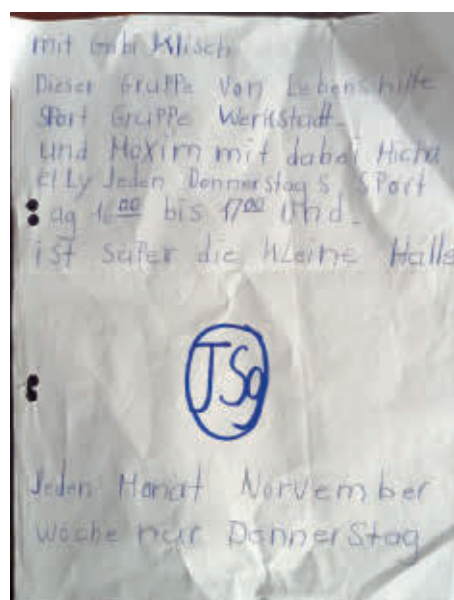 mit Gabi Klisch
Dieser Gruppe von Lebenshilfe
Sport Gruppe Werkstadt
und Maxim mit dabei Micha
el Ly Jeden Donnerstag S Sport
ag 16 00 bis 17 00 und
ist super die Kleine Halle
JSg
Jeden Monat Norvember
woche nur DonnerStag